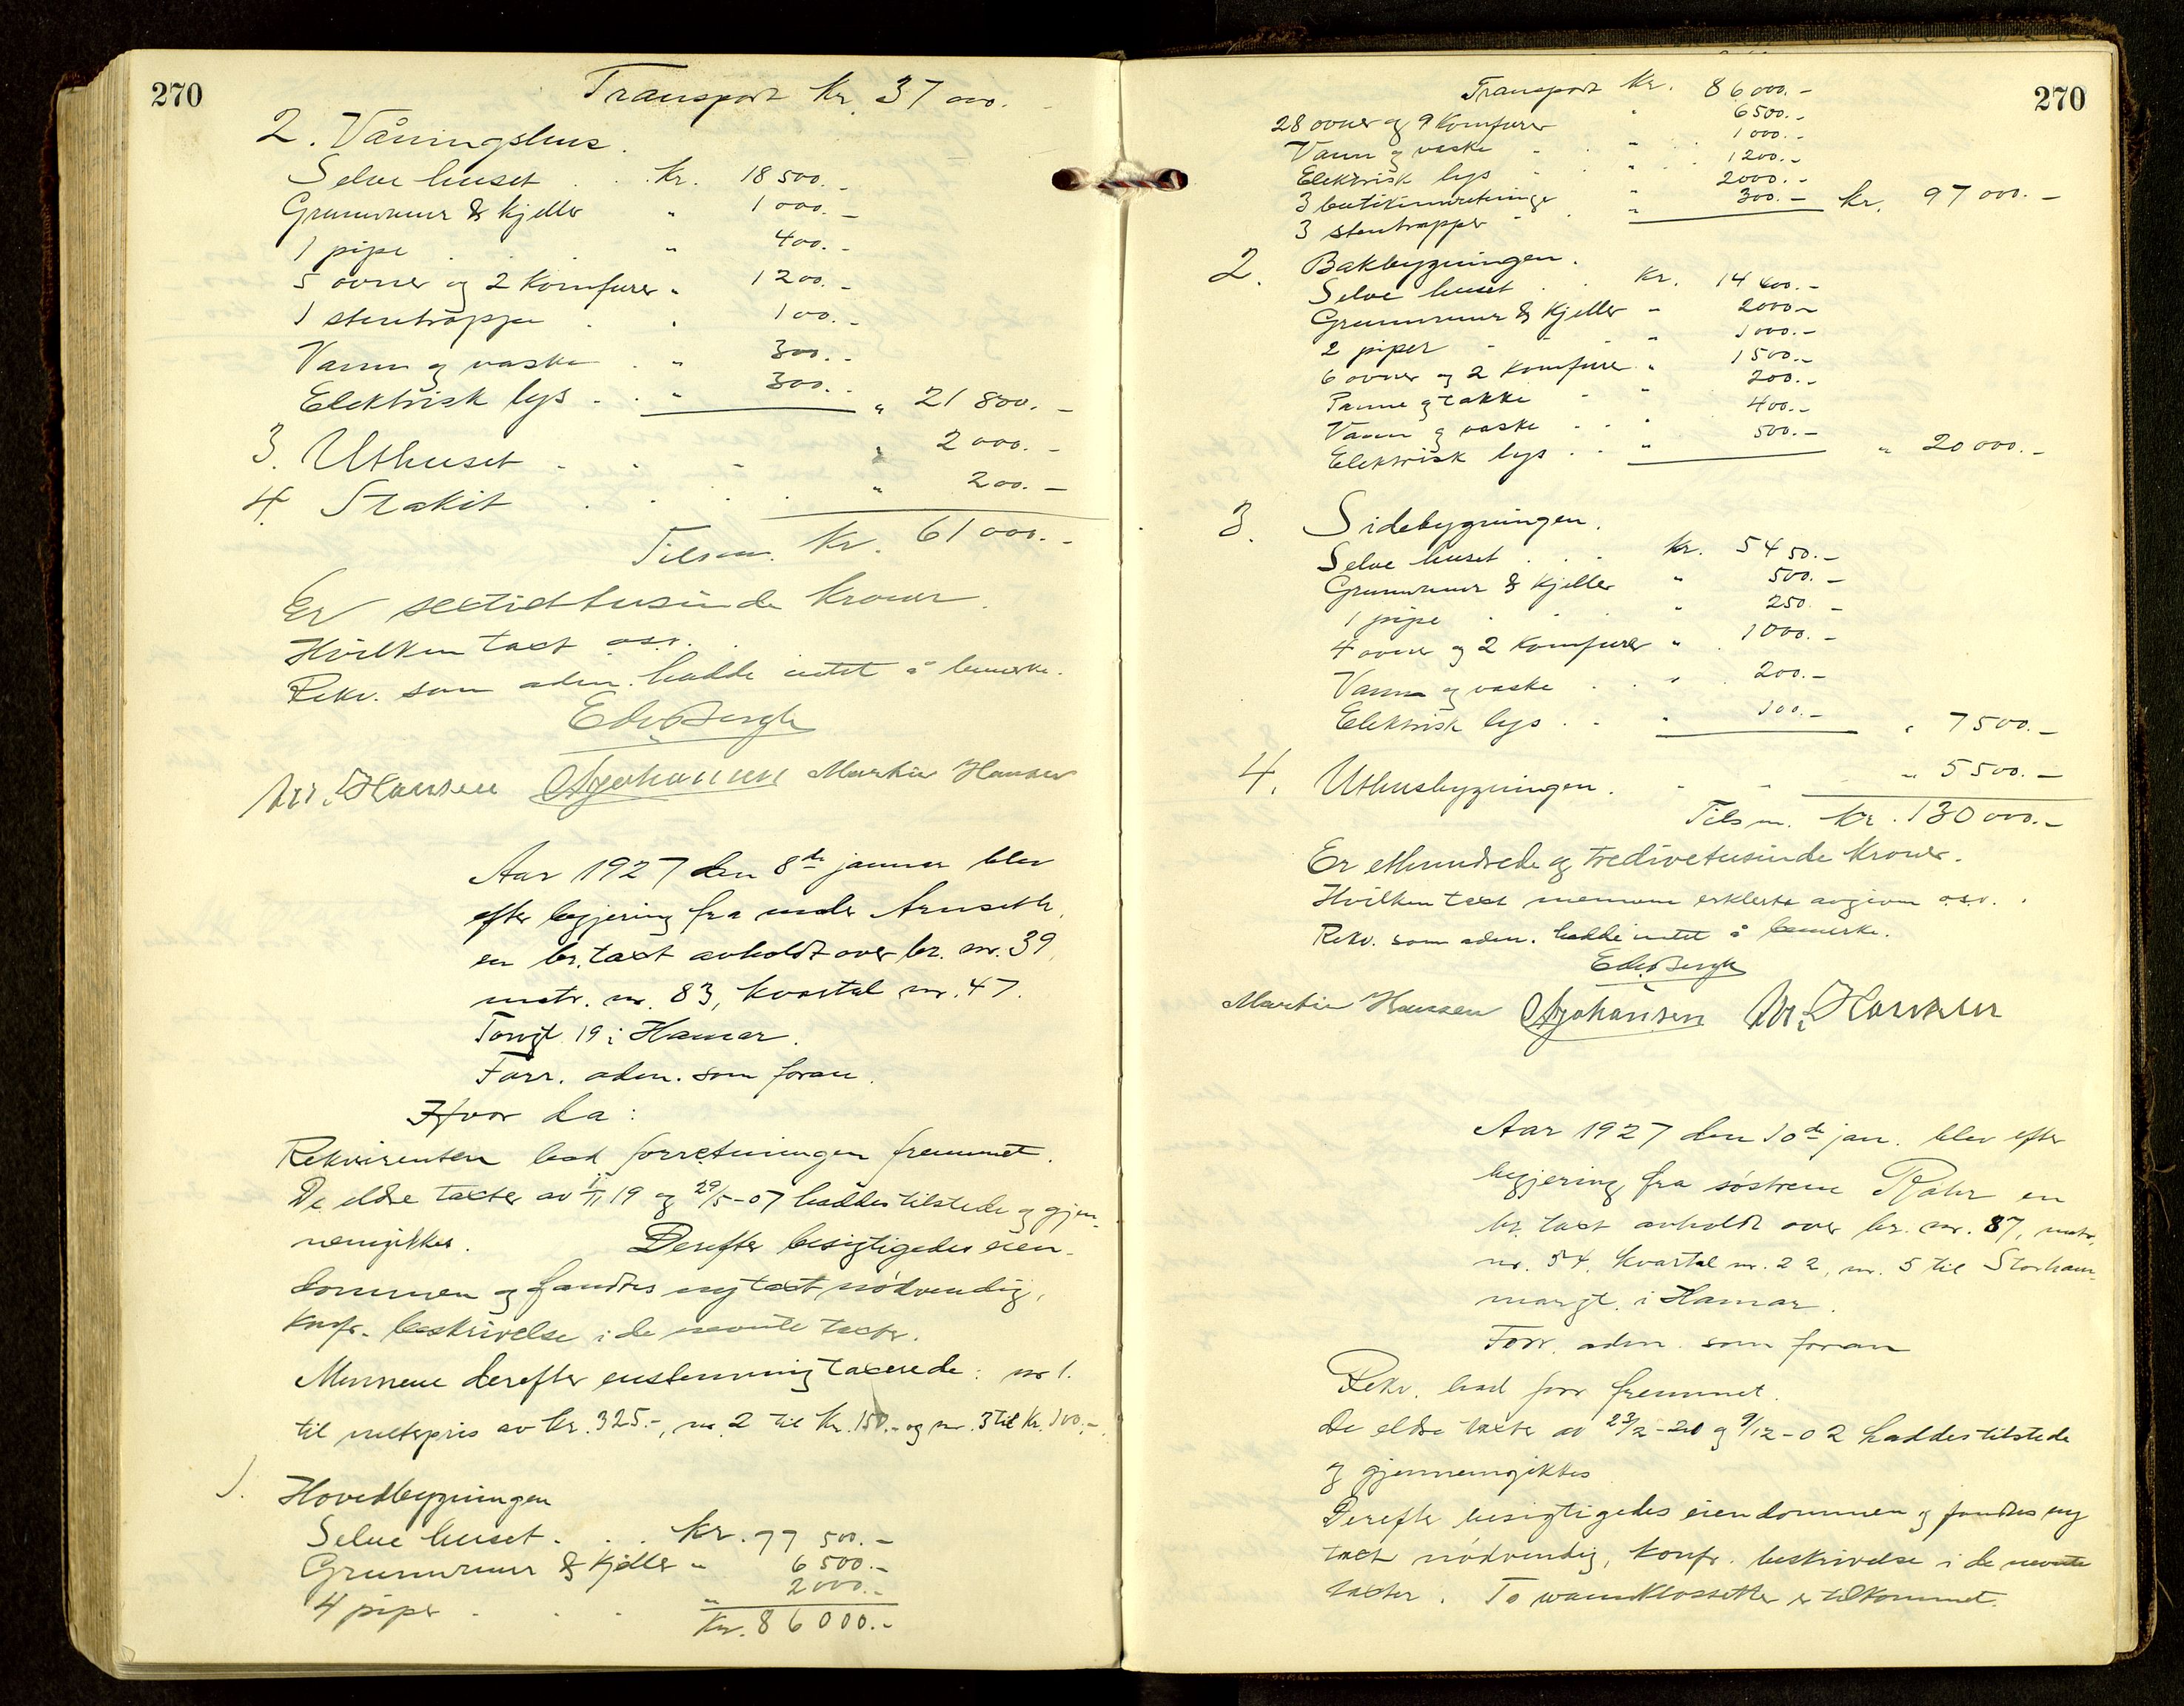 270
Transport kr. 37 000.
2. Våningshus.
Selve huset . . kr. 18 500.-
Grunnmur & kjeller " 1 000.-
1 pipe . . . " 400.-
5 ovner og 2 komfurer " 1 200.-
1 stentrappe . . 100.-
Vann og vaske . " 300.-
Elektrisk lys . . " 300.- " 21 800.-
3. Uthuset . . . " 2 000.-
4. Stakit . . . " 200.-
Tilsm. kr. 61 000.-
Er sextiettusinde kroner.
Hvilken taxt osv.
Rekv. som adm. hadde intet å bemerke.
Edv. Bergh
M. Hansen Johansen Martin Hansen
Aar 1927 den 8de januar blev
efter begjering fra
en br. taxt avholdt over br. nr. 39,
matr. nr. 83, kvartal nr. 47.
Torvgt 19 i Hamar.
Forr. adm. som foran.
Hvor da:
Rekvirenten bad forretningen fremmet.
De eldre taxter av 1/11 19 og 29/5-07 haddes tilstede og gjen-
nemgikkes. Derefter besigtigedes eien-
dommen og fandtes ny taxt nødvendig,
konfr. beskrivelse i de nevnte taxter.
Mennene derefter enstemmig taxerede: nr 1.
til meterpris av kr. 325.-, nr. 2 til kr. 150.- og nr. 3 til kr. 100.-.
1. Hovedbygningen
Selve huset . . . kr. 77 500.-
Grunnmur & kjeller " 6 500.-
4 piper . . . " 2000.-
Kr. 86 000.-
270
Transport kr. 86 000.-
28 ovner og 9 komfurer " 6500.-
Vann og vaske . . " 1 000.-
Elektrisk lys . . " 1 200.-
3 butikinnretninger " 2000.-
3 stentrapper . . " 300.- kr. 97 000.-
2. Bakbygningen.
Selve huset . . kr. 14 400.-
Grunnmur & kjeller " 2000.-
2 piper . . " 1 000.-
6 ovner og 2 komfurer " 1 500.-
Panne og takke . " 200.-
Vann og vaske . . . 400.-
Elektrisk lys . . " 500.- " 20 000.-
3. Sidebygningen.
Selve huset . . kr. 54 50.-
Grunnmur & kjeller " 500.-
1 pipe . . " 250.-
4 ovner og 2 komfurer " 1 000.-
Vann og vaske . . " 200.-
Elektrisk lys . . " 100.- " 7 500.-
4. Uthusbygningen. . . " 5 500.-
Tilsm. kr. 130 000.-
Er ethundrede og tredivetusinde kroner.
Hvilken taxt mennene erklerte avgiven osv.
Rekv. som adm. hadde intet å bemerke.
Edv. Bergh
Martin Hansen Johansen M. Hansen
Aar 1927 den 10de jan. blev efter
begjering fra søstrene en
br. taxt avholdt over br. nr. 87, matr.
nr. 54, kvartal nr. 22, nr. 5 til Storham-
margt. i Hamar.
Forr. adm. som foran
Rekv. bad forr fremmet.
De eldre taxter av 23/2-20 og 9/12-02 haddes tilstede
og gjennemgikkes
Derefter besigtigedes eiendommen og fandtes ny
taxt nødvendig, konfr. beskrivelse i de nevnte
taxter. To wannklossetter er tilkommet.